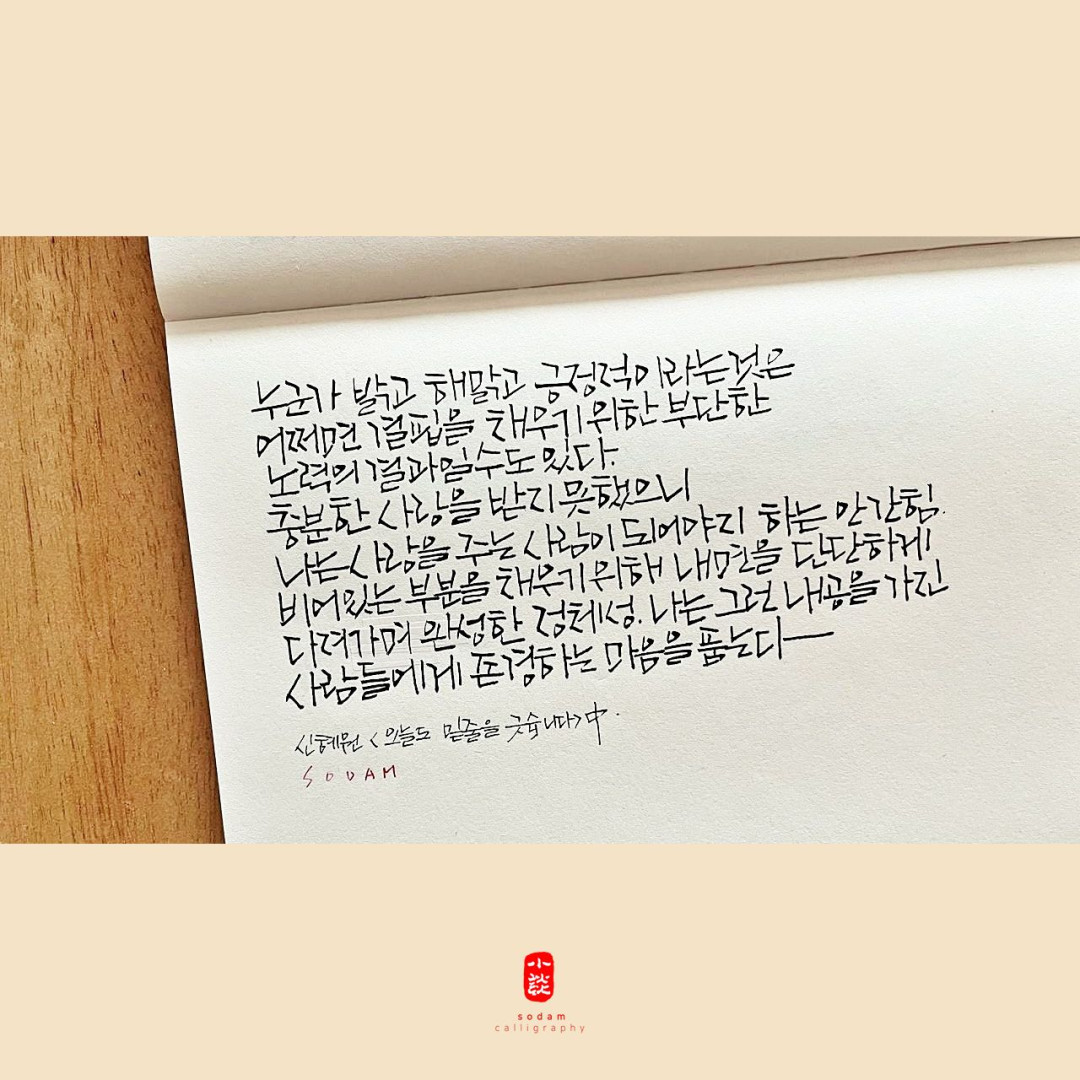 누군가 밝고 해맑고 긍정적이라는것은
어쩌면 결핍을 채우기위한 부단한
노력의 결과일수도 있다.
충분한 사랑을 받지 못했으니
나는 사랑을 주는 사람이 되어야지 하는 안간힘.
비어있는 부분을 채우기위해 내면을 단단하게
다려가며 완성한 정체성. 나는 그런 내공을 가진
사람들에게 존경하는 마음을 품는다—
신혜원 <오늘도 밑줄을 긋습니다> 中.
SODAM
小談
sodam
calligraphy